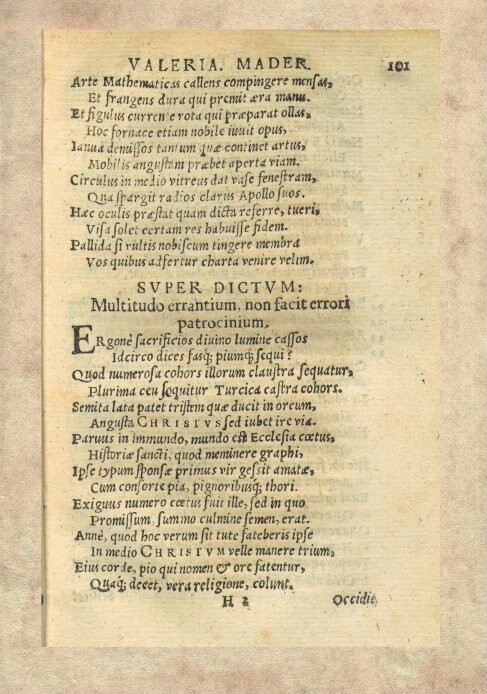 VALERIA. MADER. 101
Arte Mathematicas callens compingere mensas,
Et frangens dura qui premit æra manu.
Et figulus curren e rota qui præparat ollas,
Hoc fornace etiam nobile iuuit opus,
Ianua demissos tantum quæ continet artus,
Mobilis angustam præbet aperta viam.
Circulus in medio vitreus dat vase fenestram,
Qua spargit radios clarus Apollo suos.
Hæc oculis præstat quam dicta referre, tueri,
Visa solet certam res habuisse fidem.
Pallida si vultis nobiscum tingere membra
Vos quibus adfertur charta venire velim.
SVPER DICTVM:
Multitudo errantium, non facit errori
patrocinium.
ERgonè sacrificios diuino lumine cassos
Idcirco dices fasq; piumq; sequi?
Quod numerosa cohors illorum claustra sequatur,
Plurima ceu sequitur Turcica castra cohors.
Semita lata patet tristem quæ ducit in orcum,
Angusta CHRISTVS sed iubet ire via.
Paruus in immundo, mundo est Ecclesia cœtus,
Historiæ sancti, quod meminere graphi,
Ipse typum sponsæ primus vir gessit amatæ,
Cum consorte pia, pignoribusq; thori.
Exiguus numero cœtus fuit ille, sed in quo
Promissum summo culmine semen, erat.
Annè, quod hoc verum sit tute fateberis ipse
In medio CHRISTVM velle manere trium,
Eius corde, pio qui nomen & ore fatentur,
Quaq; decet, vera religione, colunt.
H 2 Occidit